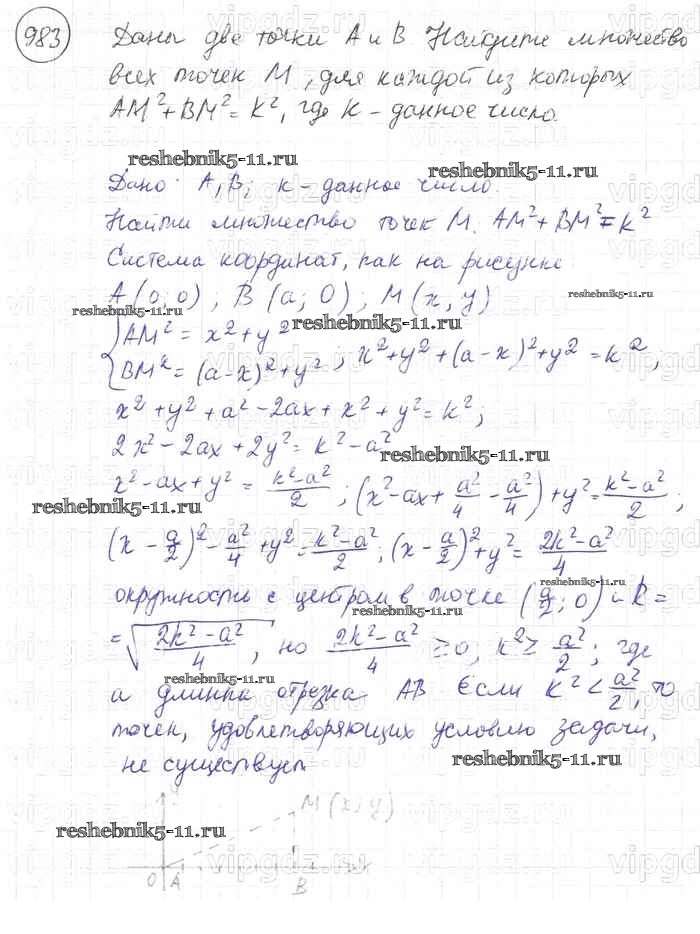 983 Даны две точки A и B. Найдите множество
всех точек M, для каждой из которых
AM²+BM²=k², где k – данное число.
reshebnik5-11.ru
reshebnik5-11.ru
Дано: A, B; k – данное число.
Найти множество точек M. AM²+BM²=k²
Система координат, как на рисунке.
A(0;0); B(a;0); M(x;y)
reshebnik5-11.ru
reshebnik5-11.ru
reshebnik5-11.ru
{AM² = x²+y²
BM² = (a-x)²+y²; x²+y²+(a-x)²+y²=k²,
x²+y²+a²-2ax+x²+y²=k²;
2x²-2ax+2y²=k²-a²
reshebnik5-11.ru
x²-ax+y² = (k²-a²)/2; (x²-ax+a²/4-a²/4)+y²=(k²-a²)/2;
reshebnik5-11.ru
(x-a/2)²-a²/4+y²=(k²-a²)/2; (x-a/2)²+y²=(2k²-a²)/4
reshebnik5-11.ru
окружность с центром в точке (a/2; 0) и R=
reshebnik5-11.ru
=√((2k²-a²)/4), но (2k²-a²)/4 ≥0, k²≥ a²/2; где
reshebnik5-11.ru
a длинна отрезка AB Если k²<a²/2, то
точек, удовлетворяющих условию задачи,
не существует.
reshebnik5-11.ru
y
M(x;y)
reshebnik5-11.ru
x
0 A B
vipgdz.ru